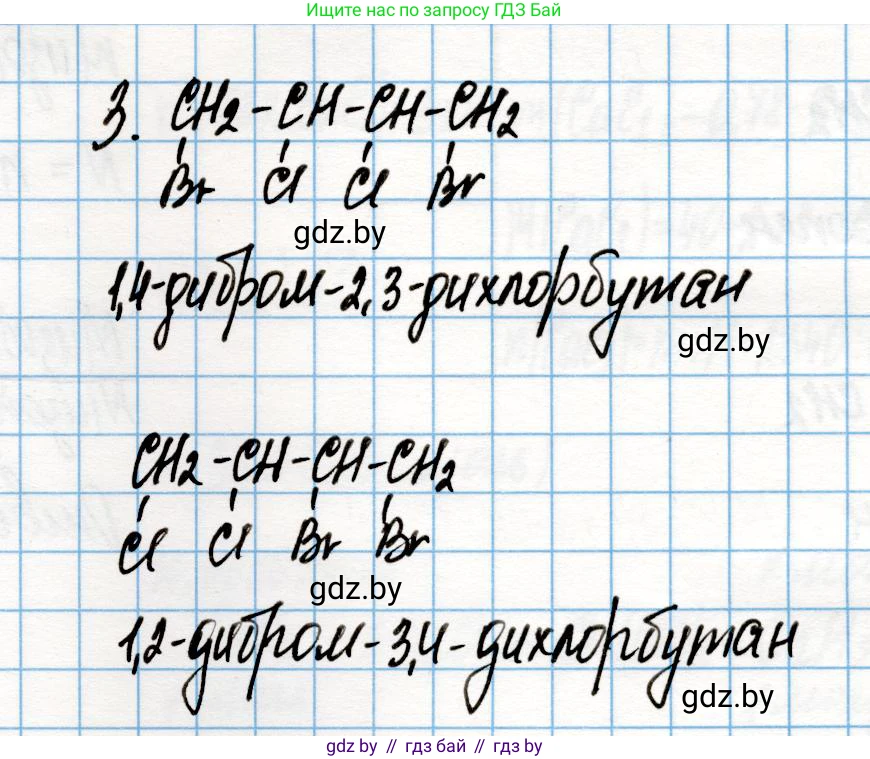 Ищите нас по запросу ГДЗ Бай
3. CH2-CH-CH-CH2
Br Cl Cl Br
gdz.by
1,4-дибром-2,3-дихлорбутан
gdz.by
CH2-CH-CH-CH2
Cl Cl Br Br
gdz.by
1,2-дибром-3,4-дихлорбутан
gdz.by
gdz.by // гдз бай // gdz.by